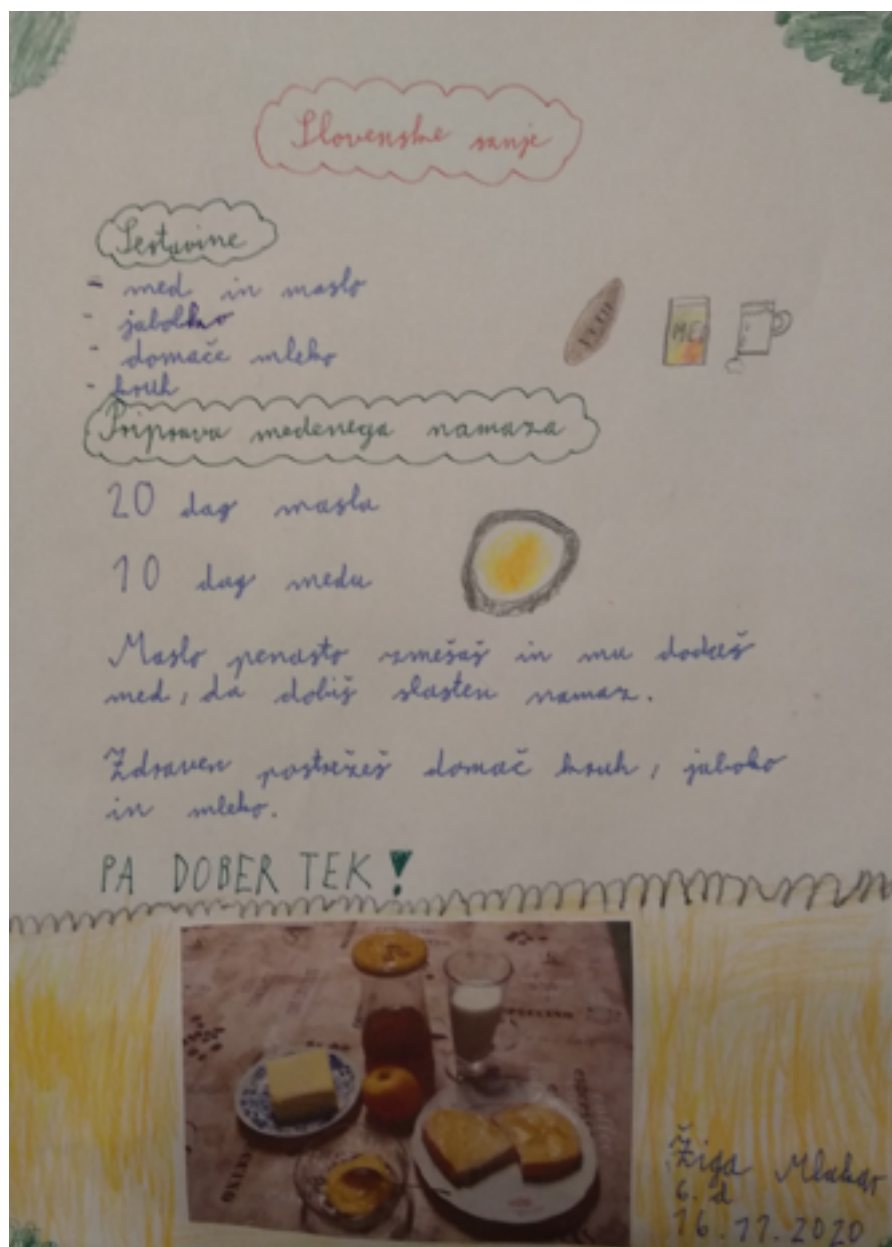 Slovenske sanje
Sestavine
- med in maslo
- jabolko
- domače mleko
- kruh
MED
Priprava medenega namaza
20 dag masla
10 dag medu
Maslo penasto zmešaš in mu dodaš
med, da dobiš slasten namaz.
Zdraven postrežeš domač kruh, jaboko
in mleko.
PA DOBER TEK!
Žiga Mlakar
6. d
16.11.2020